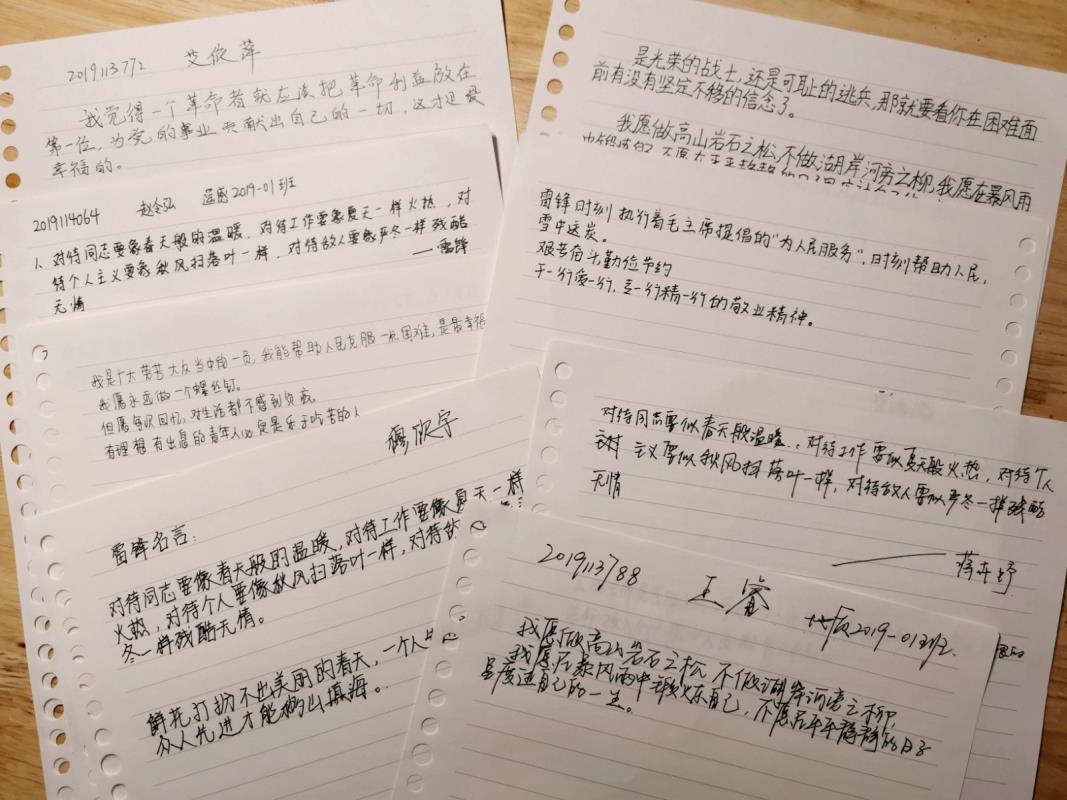 2019113772 艾欣萍
我觉得一个革命者就应该把革命利益放在
第一位,为党的事业贡献出自己的一切,这才是最
幸福的。
2019114064 赵令弘 遥感2019-01班
1、对待同志要象春天般的温暖,对待工作要象夏天一样火热,对
待个人主义要象秋风扫落叶一样,对待敌人要象严冬一样残酷
无情 ——雷锋
我是广大劳苦大众当中的一员,我能帮助人民克服一点困难,是最幸福
我愿永远做一个螺丝钉。
但愿每次回忆,对生活都不感到负疚。
有理想有出息的青年人必定是乐于吃苦的人
欣宇
雷锋名言:
对待同志要像春天般的温暖,对待工作要像夏天一样
火热,对待个人要像秋风扫落叶一样,对待敌
冬一样残酷无情。
鲜花打扮不出美丽的春天,一个人
众人先进才能移山填海。
是光荣的战士,还是可耻的逃兵,那就要看你在困难面
前有没有坚定不移的信念了。
我愿做高山岩石之松,不做湖岸河旁之柳,我愿在暴风雨
雷锋时刻执行着毛主席提倡的“为人民服务”,时刻帮助人民,
雪中送炭。
艰苦奋斗勤俭节约
干一行爱一行,专一行精一行的敬业精神。
对待同志要似春天般温暖,对待工作要似夏天般火热,对待个
主义要似秋风扫落叶一样,对待敌人要似严冬一样残酷
无情
——蒋卉妤
2019113788 王睿 地质2019-01班
我愿做高山岩石之松 不做湖岸河旁之柳,
我愿在暴风雨中锻炼自己,不愿在平平静静的日子
里度过自己的一生。